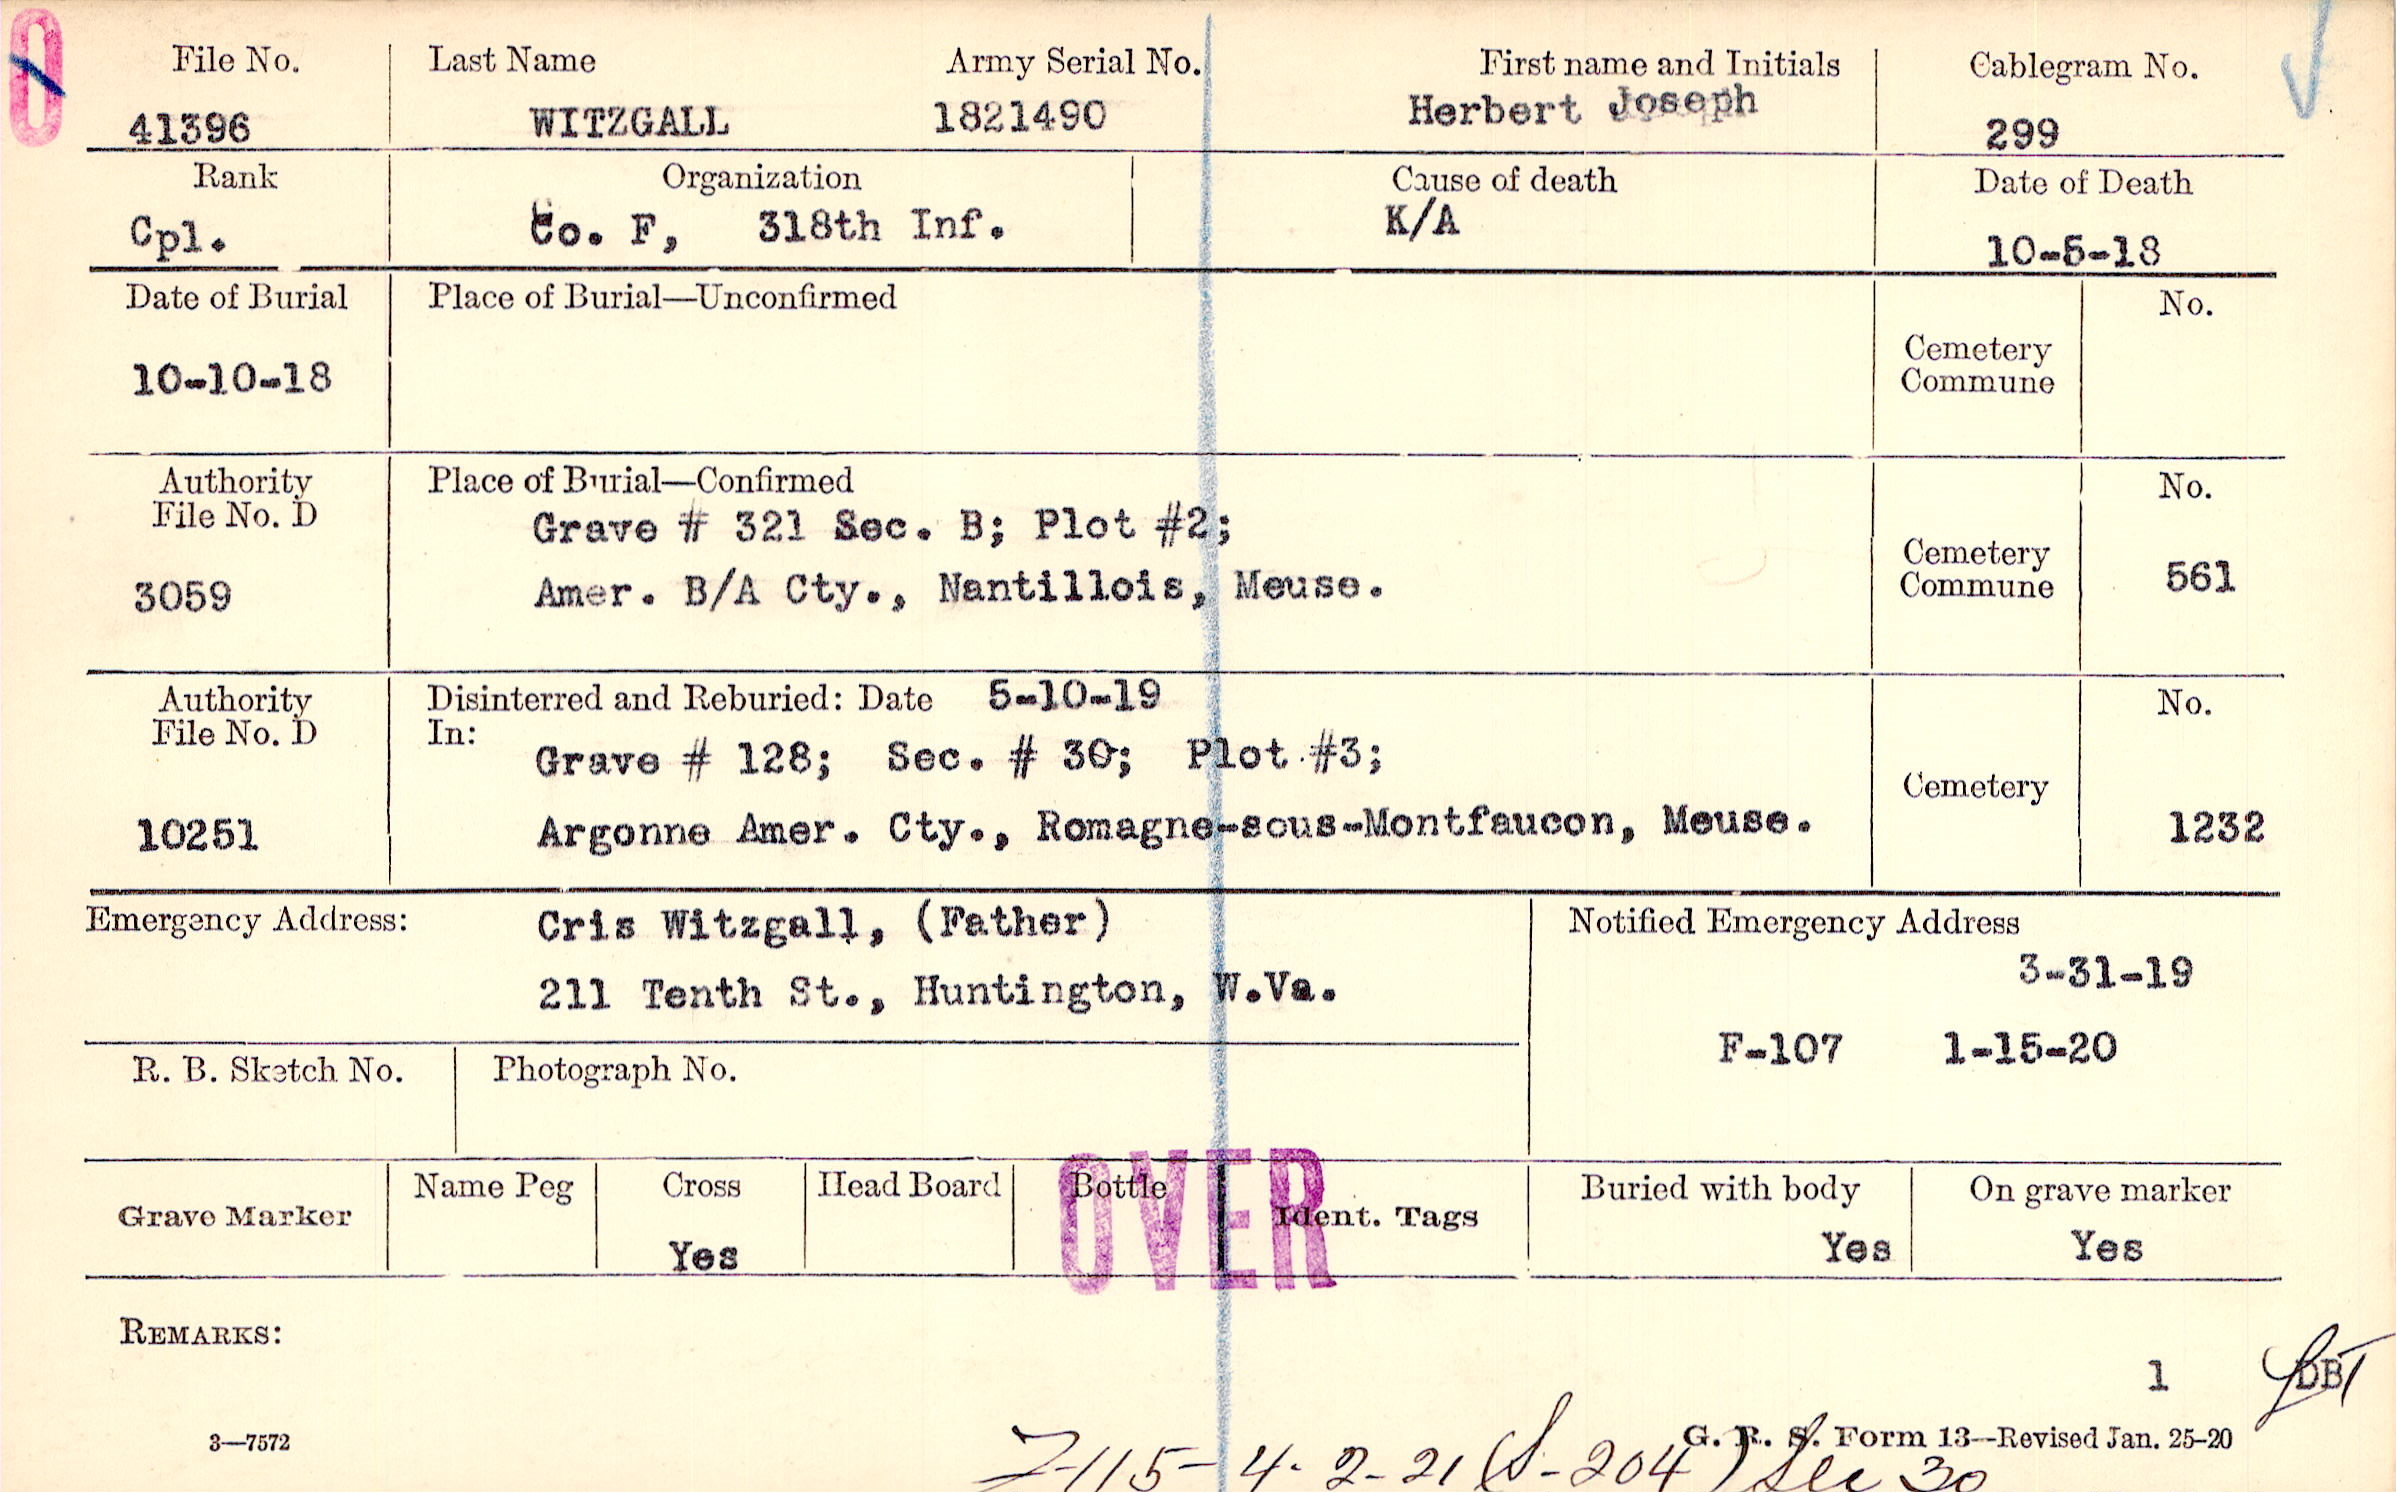 0
File No. Last Name Army Serial No. First name and Initials Cablegram No.
41396 WITZGALL 1821490 Herbert Joseph 299
Rank Organization Cause of death Date of Death
Cpl. Co. F, 318th Inf. K/A 10-5-18
Date of Burial Place of Burial—Unconfirmed No.
Cemetery
Commune
10-10-18
Authority Place of Burial—Confirmed No.
File No. D
Grave # 321 Sec. B; Plot #2;
Cemetery
Commune
3059 Amer. B/A Cty., Nantillois, Meuse. 561
Authority Disinterred and Reburied: Date 5-10-19 No.
File No. D In:
Grave # 128; Sec. # 30; Plot #3;
Cemetery
10251 Argonne Amer. Cty., Romagne-sous-Montfaucon, Meuse. 1232
Emergency Address: Cris Witzgall, (Father) Notified Emergency Address
3-31-19
211 Tenth St., Huntington, W.Va.
F-107 1-15-20
R. B. Sketch No. Photograph No.
OVER
Grave Marker Name Peg Cross Head Board Bottle Ident. Tags Buried with body On grave marker
Yes Yes Yes
REMARKS:
1 DBT
3—7572 G. R. S. Form 13—Revised Jan. 25-20
7-115- 4-2-21 (S-204) Sec 30